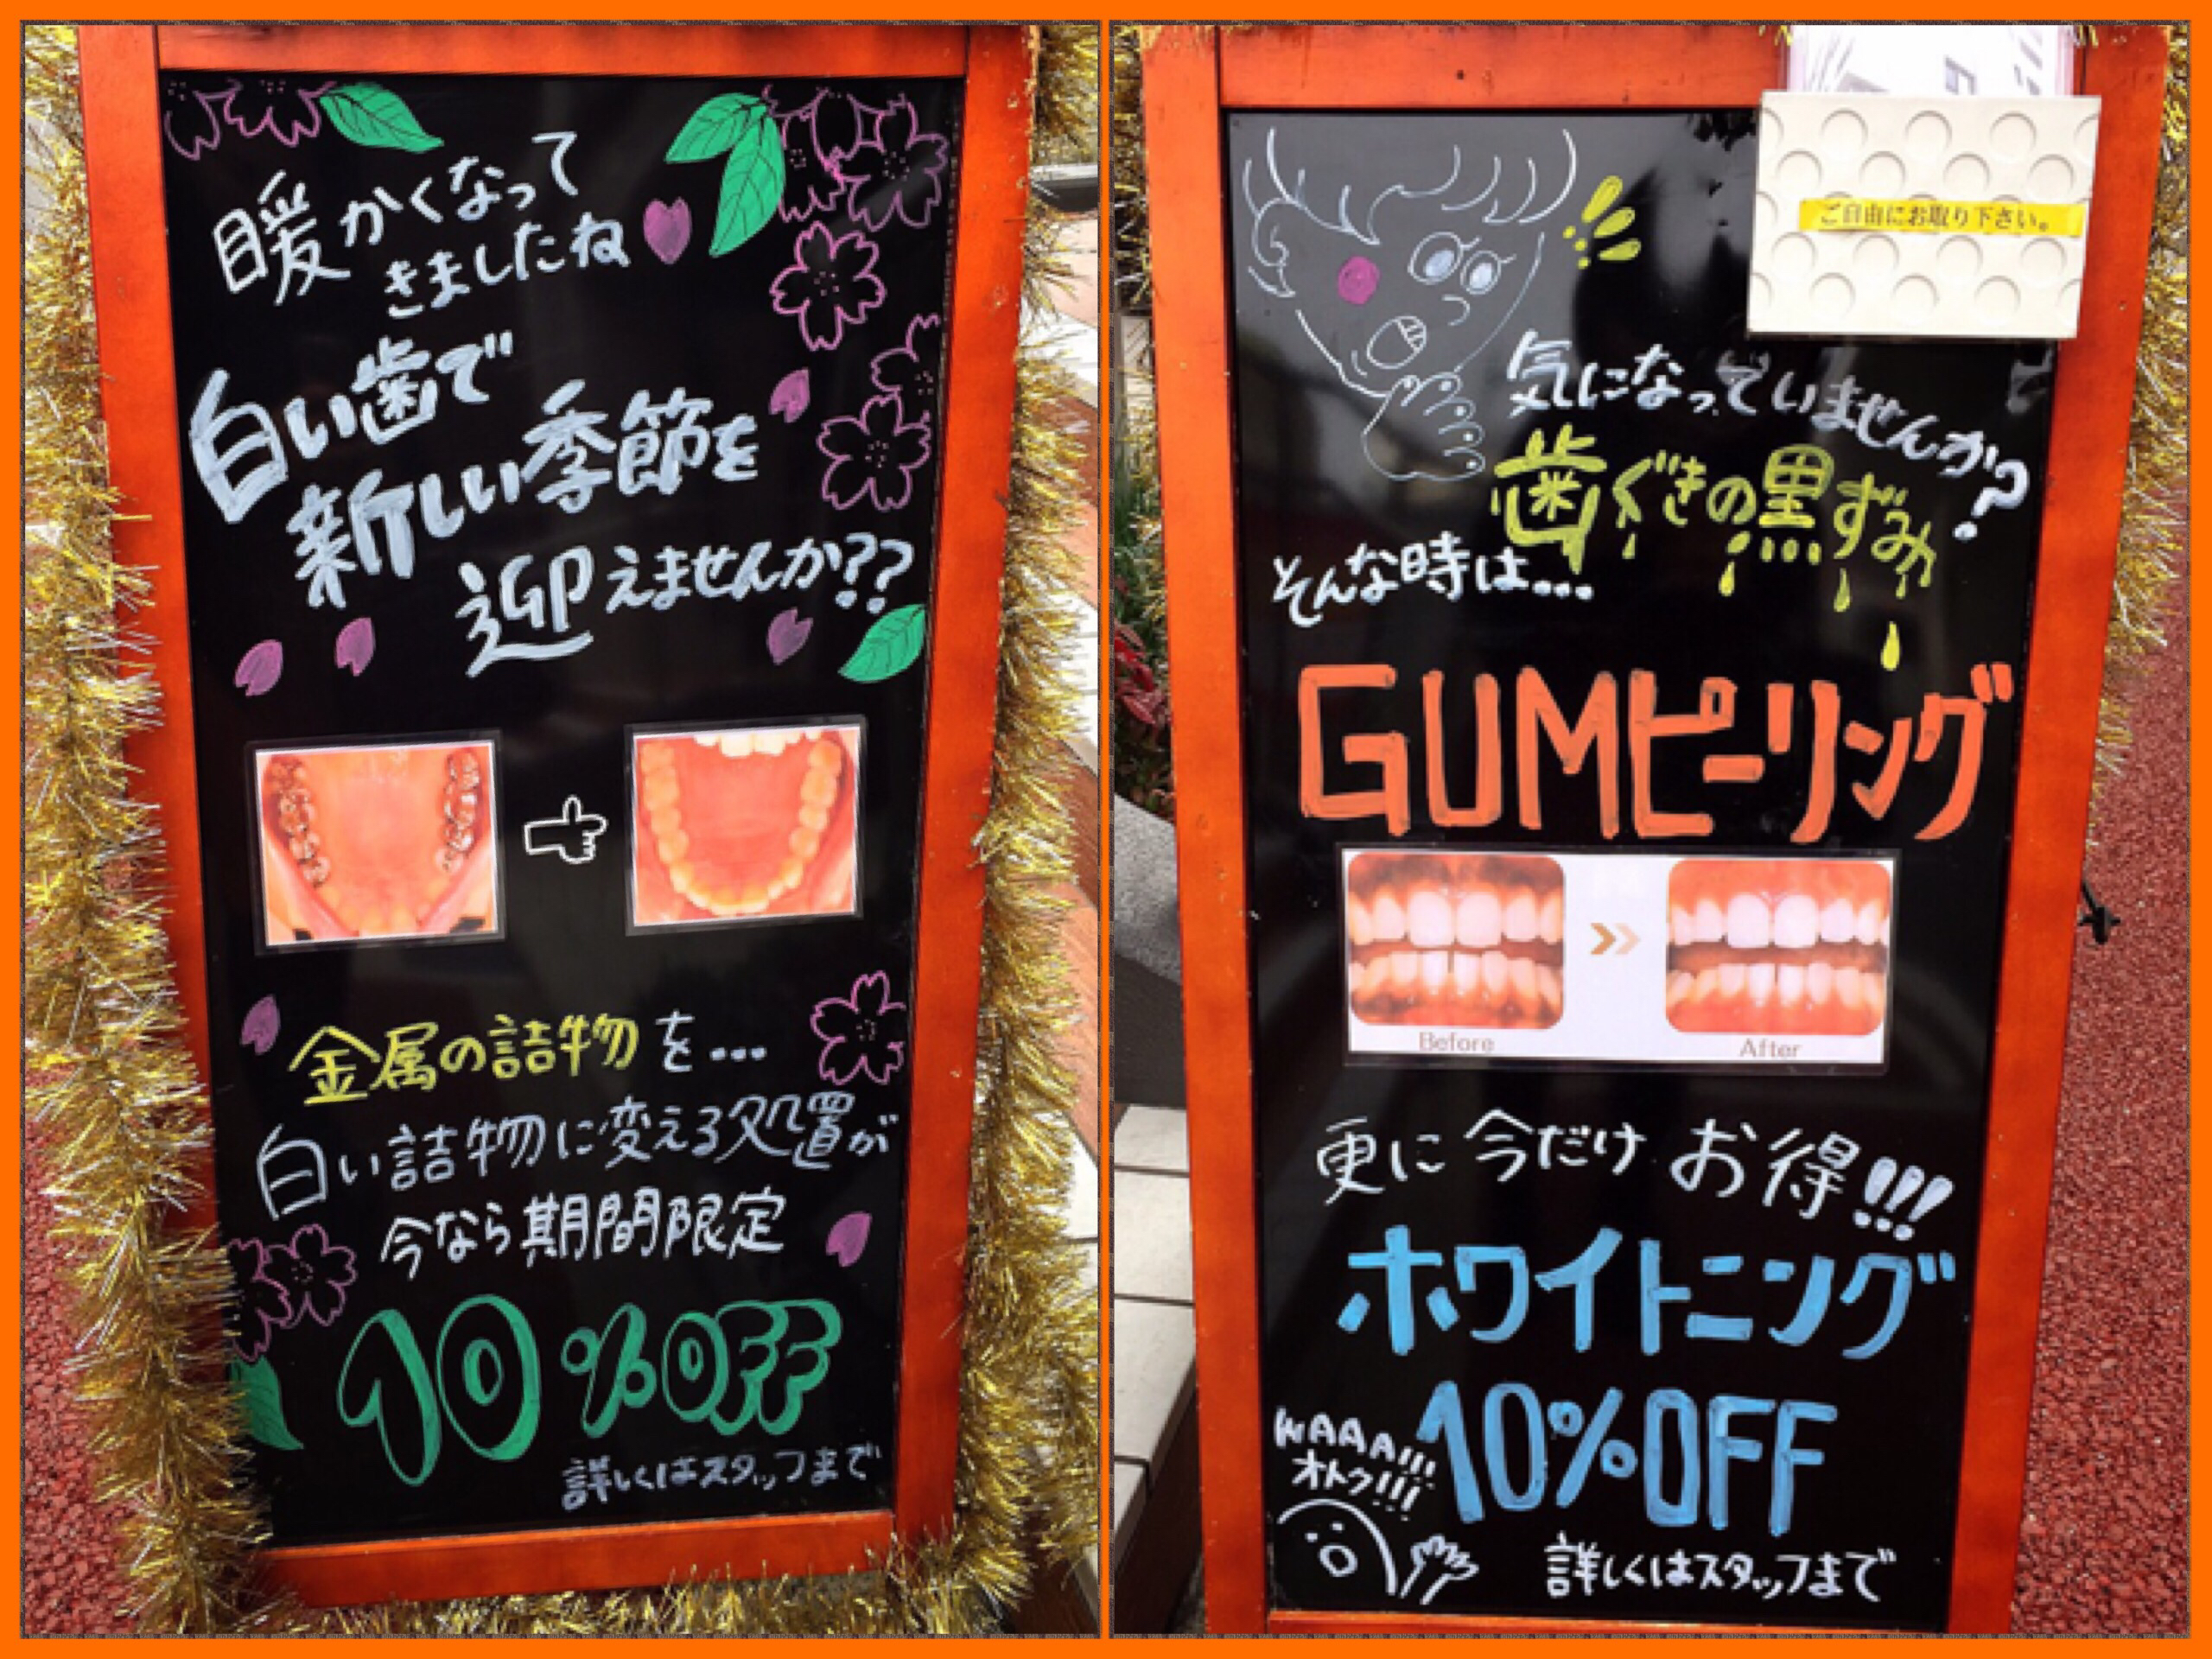 暖かくなって
きましたね
白い歯で
新しい季節を
迎えませんか??
金属の詰物を...
白い詰物に変える処置が
今なら期間限定
10%OFF
詳しくはスタッフまで
ご自由にお取り下さい。
気になっていませんか?
歯ぐきの黒ずみ
そんな時は...
GUMピーリング
Before
After
更に今だけお得!!!
ホワイトニング
10%OFF
WAAA!!!
オトク!!!
詳しくはスタッフまで